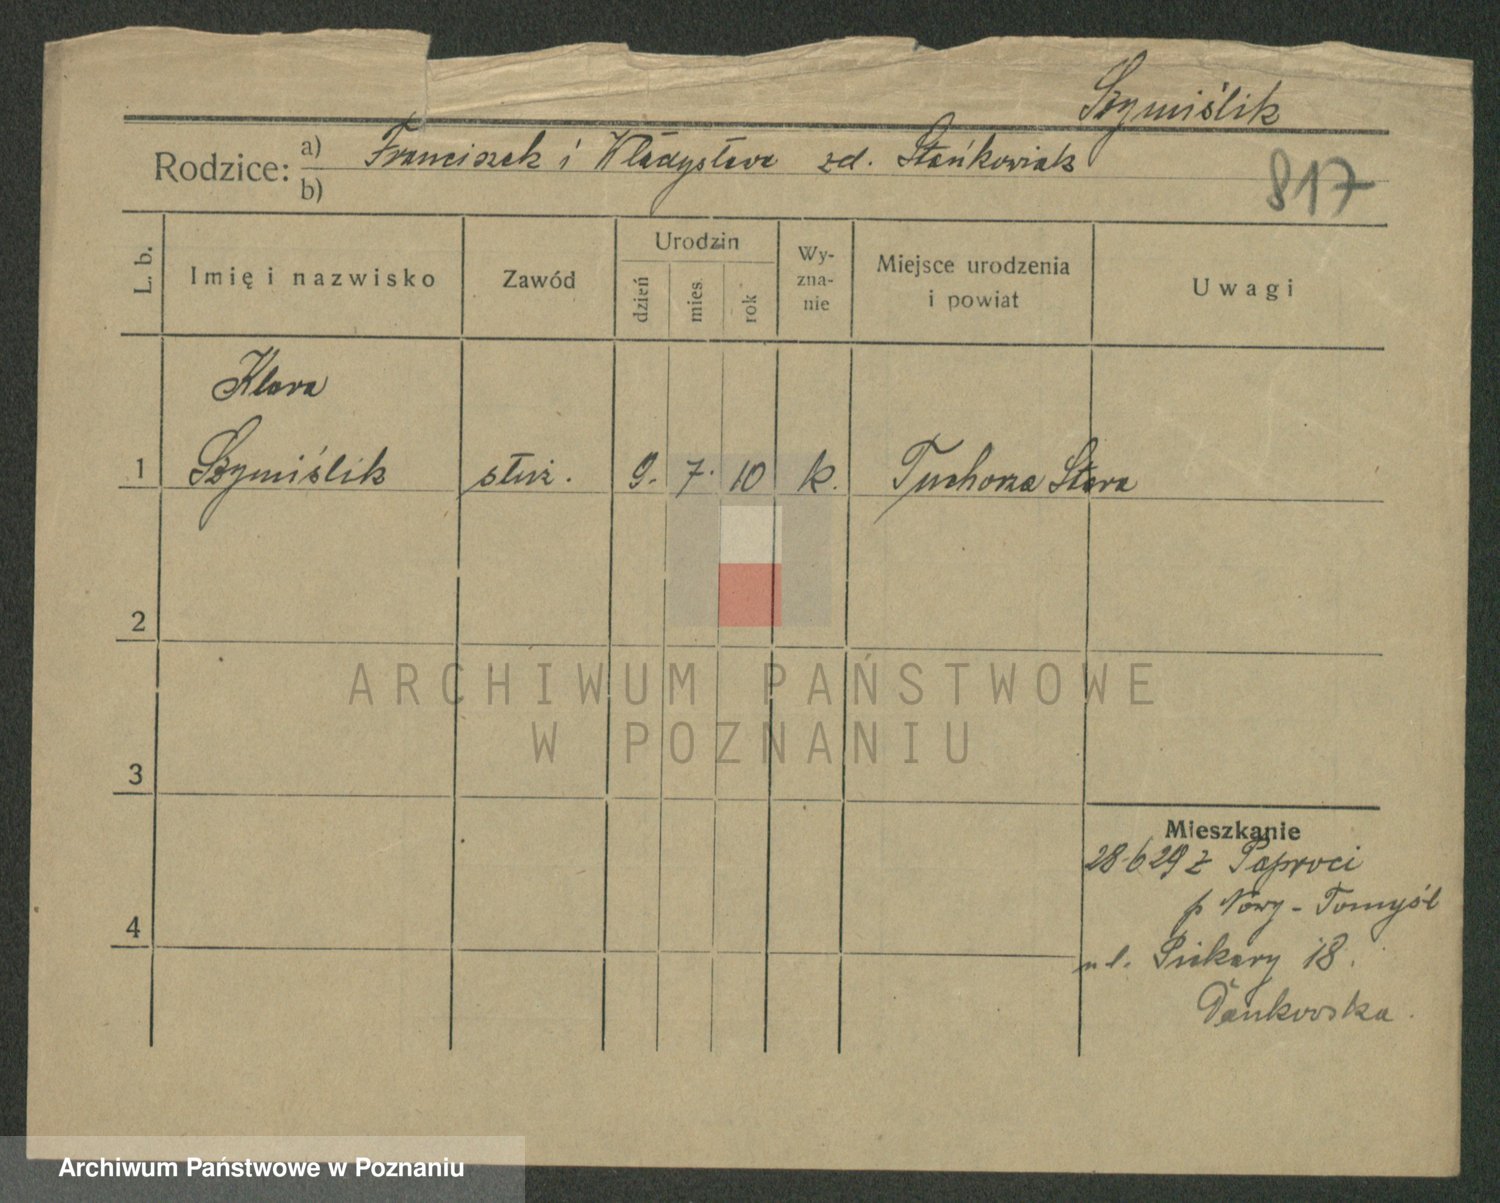 Szymiślik
Rodzice: a) Franciszek i Władysława zd. Stańkowiak
b)
817
L. b.
Imię i nazwisko
Zawód
Urodzin
dzień
mies.
rok
Wy-
zna-
nie
Miejsce urodzenia
i powiat
Uwagi
Klara
1 Szymiślik służ. 9. 7. 10 k. Tuchorza Stara
2
ARCHIWUM PAŃSTWOWE
W POZNANIU
3
4
Mieszkanie
28.6 29 z Paproci
p Nowy-Tomyśl
ul. Piekary 18.
Dankowska.
Archiwum Państwowe w Poznaniu